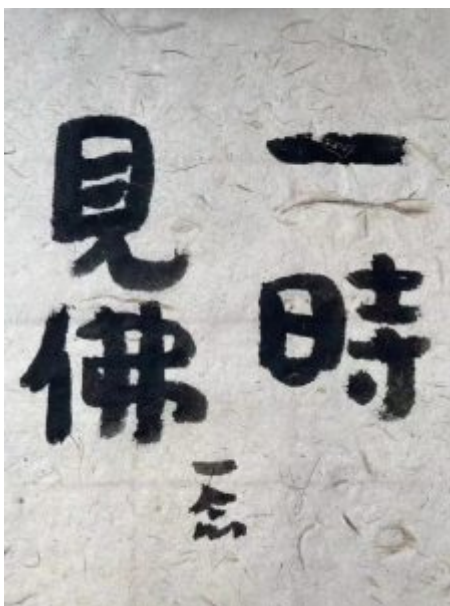 一時
見佛
一念